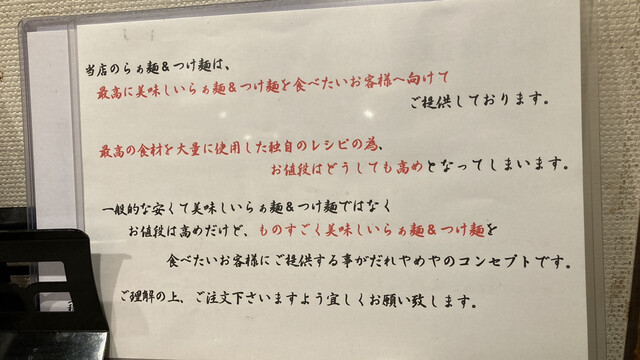 当店のらぁ麺＆つけ麺は、
最高に美味しいらぁ麺＆つけ麺を食べたいお客様へ向けて
ご提供しております。
最高の食材を大量に使用した独自のレシピの為、
お値段はどうしても高めとなってしまいます。
一般的な安くて美味しいらぁ麺＆つけ麺ではなく
お値段は高めだけど、ものすごく美味しいらぁ麺＆つけ麺を
食べたいお客様にご提供する事がだれやめやのコンセプトです。
ご理解の上、ご注文下さいますよう宜しくお願い致します。